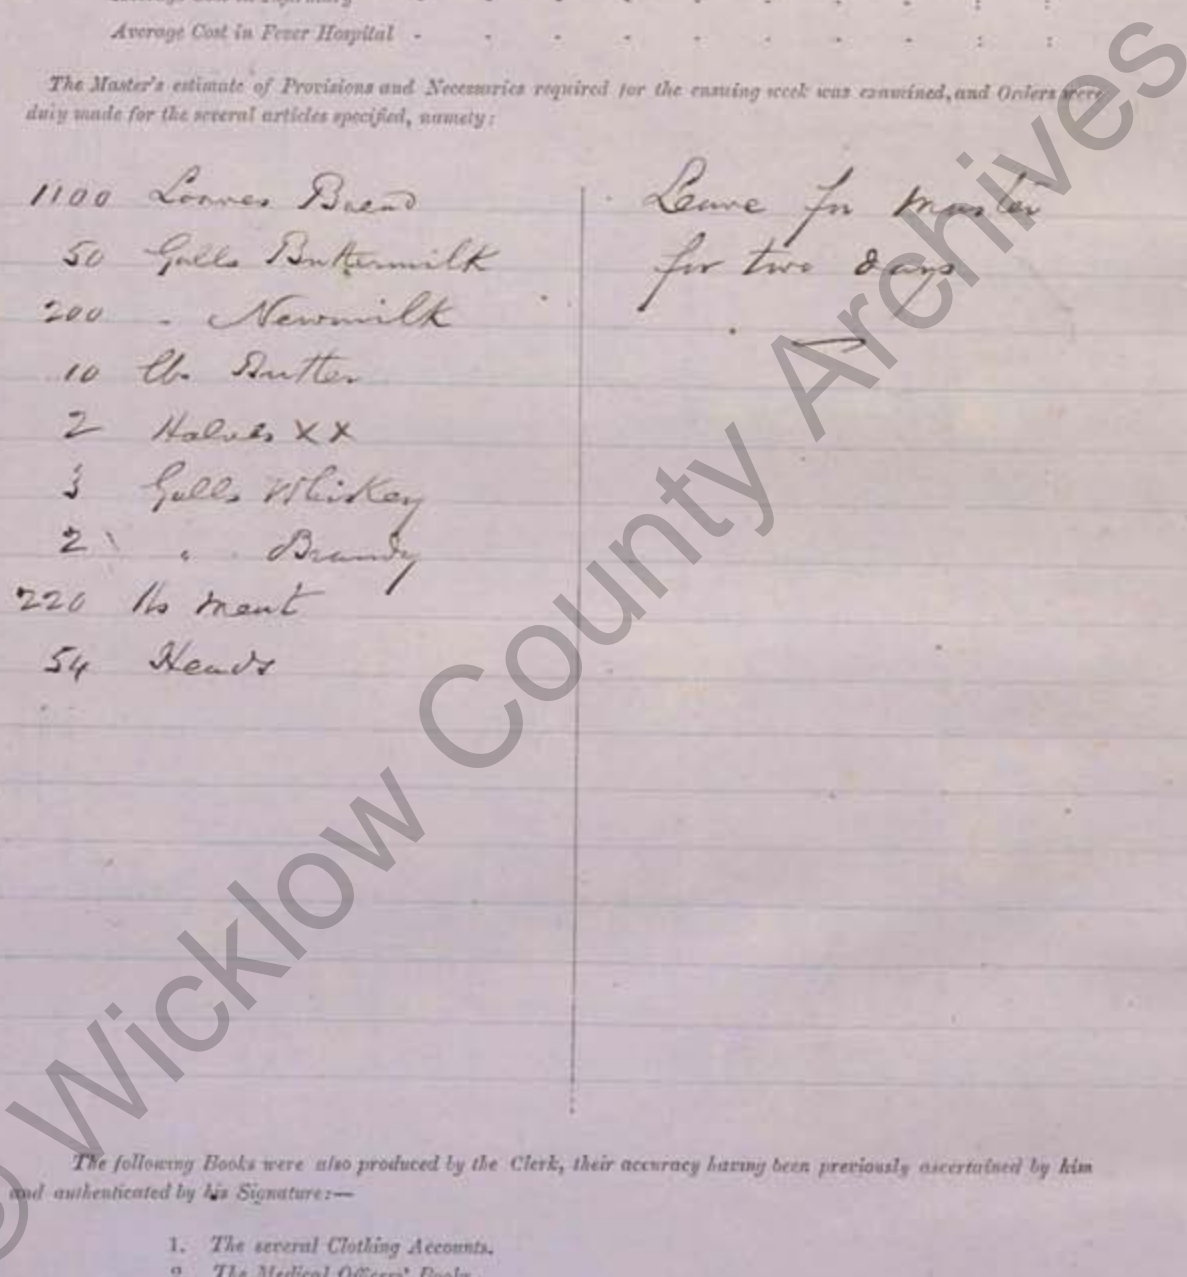 Average Cost in Fever Hospital
The Master's estimate of Provisions and Necessaries required for the ensuing week was examined, and Orders were
duly made for the several articles specified, namely:
1100 Loaves Bread
50 Galls Buttermilk
200 " Newmilk
10 lbs Butter
2 Halves XX
3 Galls Whiskey
2 " Brandy
220 lbs meat
54 Heads
Leave for Master
for two days
The following Books were also produced by the Clerk, their accuracy having been previously ascertained by him
and authenticated by his Signature:—
1. The several Clothing Accounts.
2. The Medical Officers' Books
© Wicklow County Archives